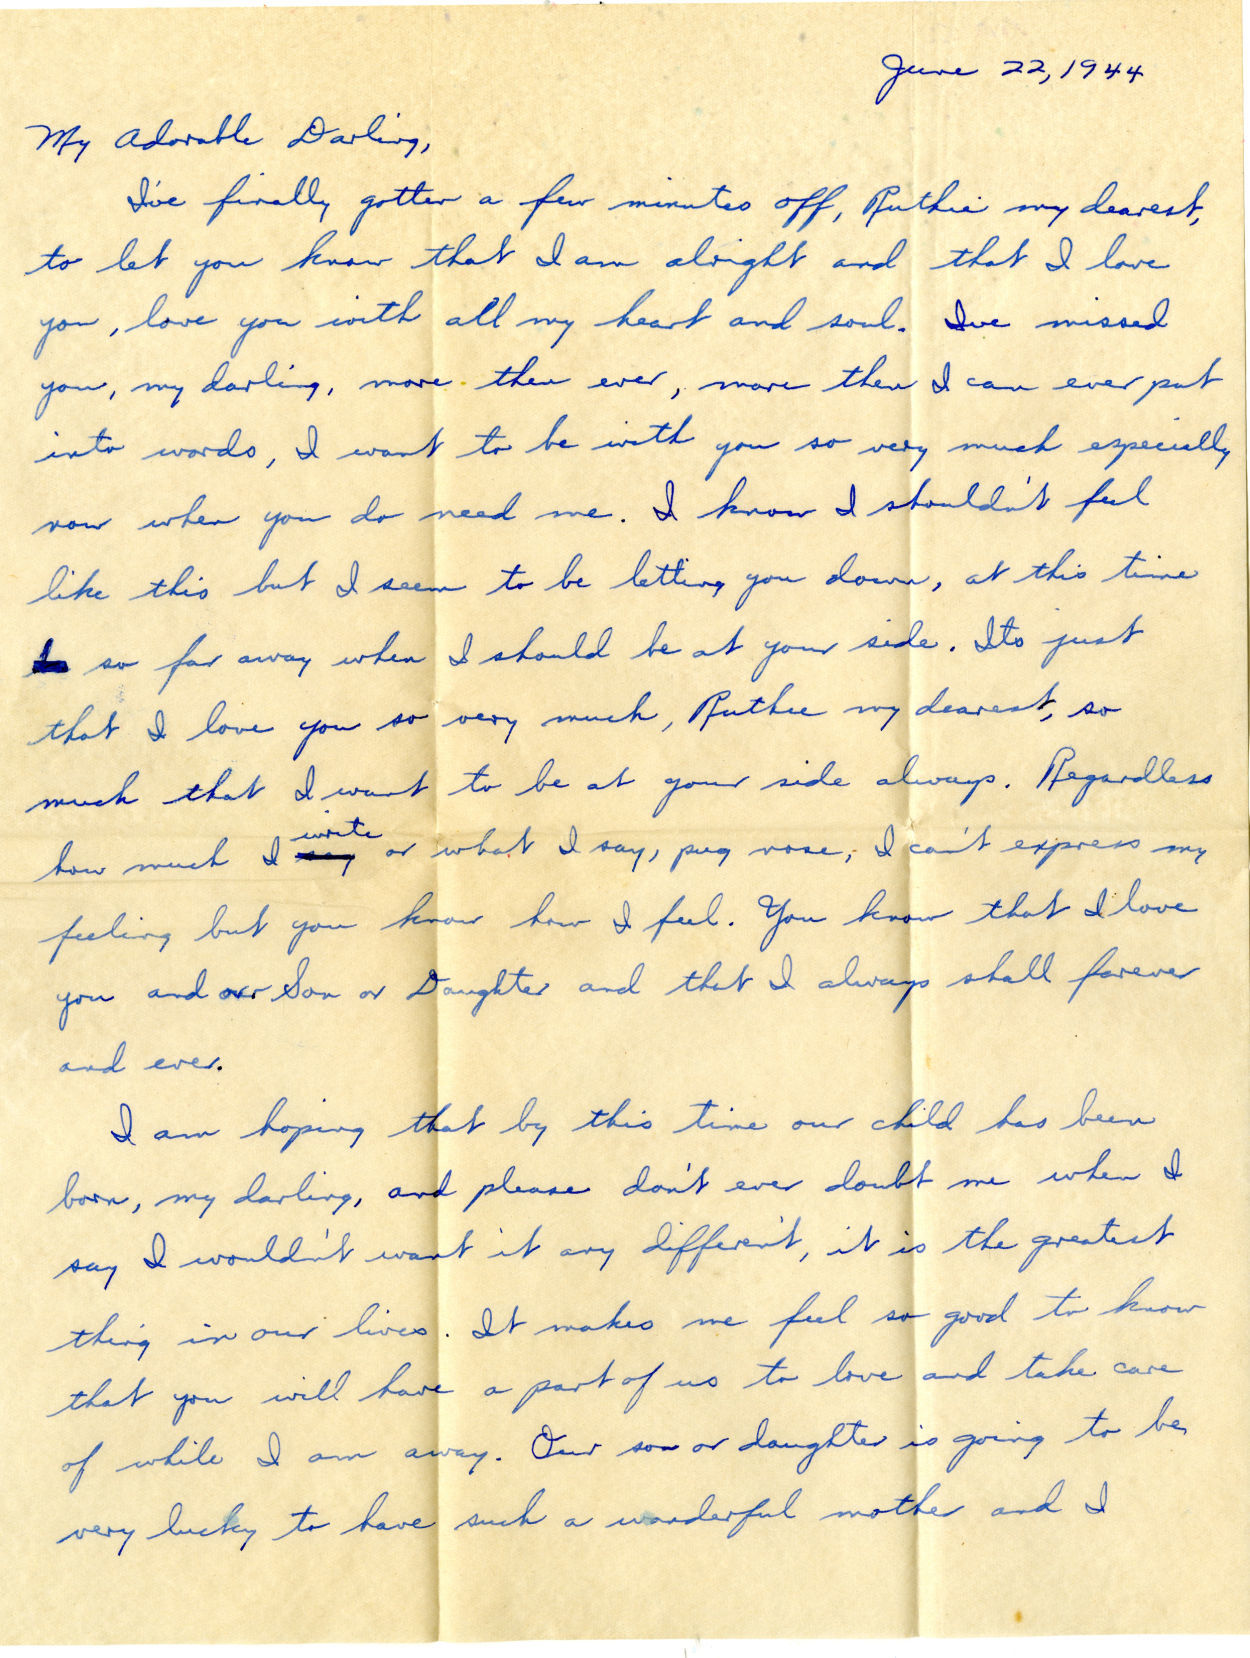 June 22, 1944
My Adorable Darling,
I've finally gotten a few minutes off, Ruthie my dearest,
to let you know that I am alright and that I love
you, love you with all my heart and soul. I've missed
you, my darling, more then ever, more then I can ever put
into words, I want to be with you so very much especially
now when you do need me. I know I shouldn't feel
like this but I seem to be letting you down, at this time
so far away when I should be at your side. Its just
that I love you so very much, Ruthie my dearest, so
much that I want to be at your side always. Regardless
how much I say write or what I say, pug nose, I can't express my
feeling but you know how I feel. You know that I love
you and our Son or Daughter and that I always shall forever
and ever.
I am hoping that by this time our child has been
born, my darling, and please don't ever doubt me when I
say I wouldn't want it any different, it is the greatest
thing in our lives. It makes me feel so good to know
that you will have a part of us to love and take care
of while I am away. Our son or daughter is going to be
very lucky to have such a wonderful mother and I